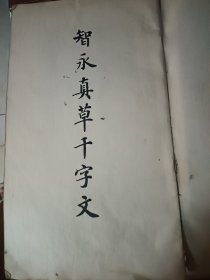 智永真草千字文